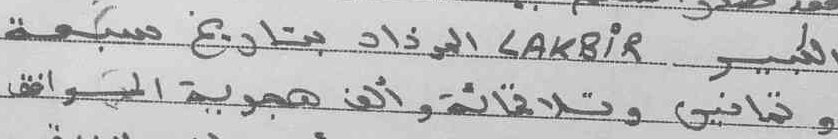 الكبير LAKBIR المزداد بتاريخ سبعة
و ثمانين وثلاثمائة وألف هجرية الموافق